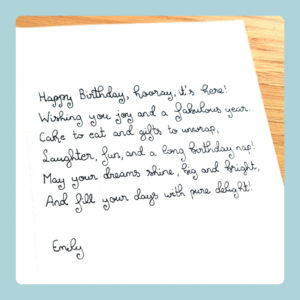 Happy Birthday, hooray, it's here!
Wishing you joy and a fabulous year.
Cake to eat and gifts to unwrap,
Laughter, fun, and a long birthday nap!
May your dreams shine, big and bright,
And fill your days with pure delight!
Emily